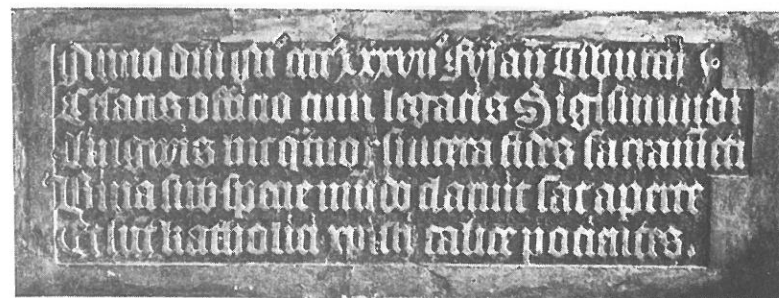 Anno dn̄i xxxvii añ Tiburtii
Cesaris officio cum legatis Sigismundi
lingwis in sincera fides sacram̄eti
Bina sub specie mundo claruit sat aperte
Et sūt katholici xp̄isti calice pocientes.